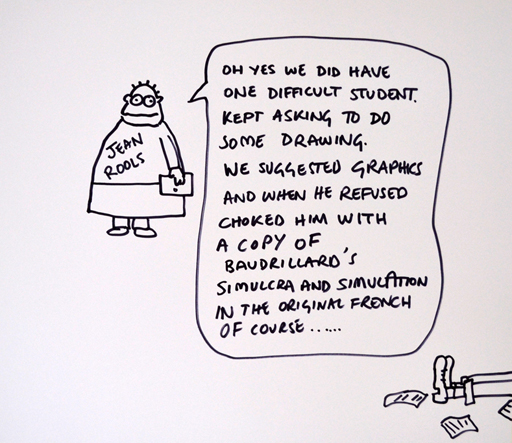 JEAN
ROOLS
OH YES WE DID HAVE
ONE DIFFICULT STUDENT.
KEPT ASKING TO DO
SOME DRAWING.
WE SUGGESTED GRAPHICS
AND WHEN HE REFUSED
CHOKED HIM WITH
A COPY OF
BAUDRILLARD'S
SIMULCRA AND SIMULATION
IN THE ORIGINAL FRENCH
OF COURSE......